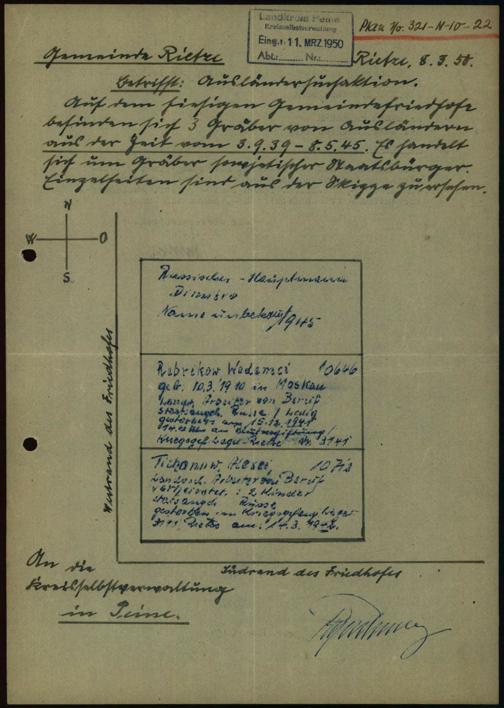 Landkreis Peine
Kreisselbstverwaltung
Eing.: 11. MRZ. 1950
Abt.: Nr.:
No. 321-N-10-22
Gemeinde Rietze
Rietze, 8. 3. 50.
Betrifft: Ausländersuchaktion.
Auf dem hiesigen Gemeindefriedhofe
befinden sich 3 Gräber von Ausländern
aus der Zeit vom 3.9.39 - 8.5.45. Es handelt
sich um Gräber sowjetischer Staatsbürger.
Einzelheiten sind aus der Skizze zu ersehen.
N
W O
S
Russischer - Hauptmann
Name unbekannt
1945
Rebrikow
10646
geb. 10.3.1910 in Moskau
Landw. Arbeiter von Beruf
staatsangeh. Russe / ledig
gestorben am 15.12.1941
an Blutvergiftung
Alexei, 107
Landw. Arbeiter von Beruf
verheiratet: 2 Kinder
staatsangeh. Russe
gestorben im
am: 14.3.1942.
Westrand des Friedhofes
Südrand des Friedhofes
An die
Kreisselbstverwaltung
in Peine.